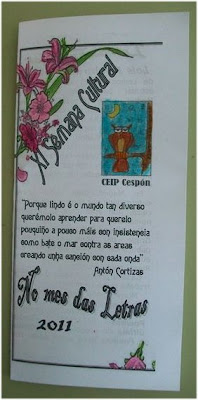 XI Semana Cultural
CEIP Cespón
"Porque lindo é o mundo tan diverso
querémolo aprender para querelo
pouquiño a pouco máis con insistencia
como bate o mar contra as areas
creando unha canción con cada onda"
Antón Cortizas
No mes das Letras
2011